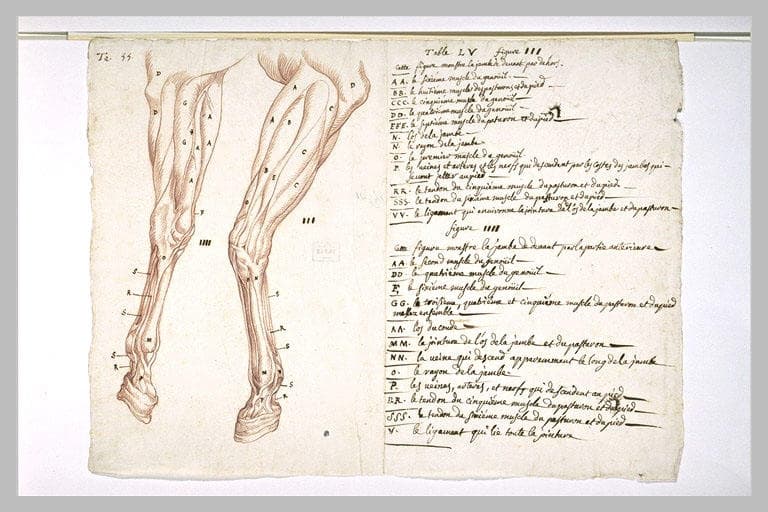 Ta. 55
Table LV figure III
Cette figure monstre la jambe de devant par dehors.
AA. le sixieme muscle du genoüil
BB. le huitieme muscle du pasturon et du pied
CCC. le cinquieme muscle du genoüil
DD. le quatrieme muscle du genoüil
EEE. le septieme muscle du pasturon et du pied
N. l'os de la jambe
N. le rayon de la jambe
O. le premier muscle du genoüil
P. les veines et arteres et les nerfs qui descendent par les costes des jambes qui
se vont jetter au pied
RR. le tendon du cinquieme muscle du pasturon et du pied
SSS. le tendon du sixieme muscle du pasturon et du pied
VV. le ligament qui environne la jointure de l'os de la jambe et du pasturon
figure IIII
Cette figure monstre la jambe de devant par la partie anterieure
AA. le second muscle du genoüil
DD. le quatrieme muscle du genoüil
F. le sixieme muscle du genoüil
GG. le troisieme, quatrieme et cinquieme muscle du pasturon et du pied
ensemble
AA. l'os du coude
MM. la jointure de l'os de la jambe et du pasturon
NN. la veine qui descend apparemment le long de la jambe
O. le rayon de la jambe
P. les veines, arteres, et nerfs qui descendent au pied
RR. le tendon du cinquieme muscle du pasturon et du pied
SSS. le tendon du sixieme muscle du pasturon et du pied
V. le ligament qui lie toute la jointure
D
G
A
D
A
G
A
A
F
IIII
O
S
R
S
M
S
R
A
D
A
B
C
C
B
E
D
III
S
R
S
R
M
S